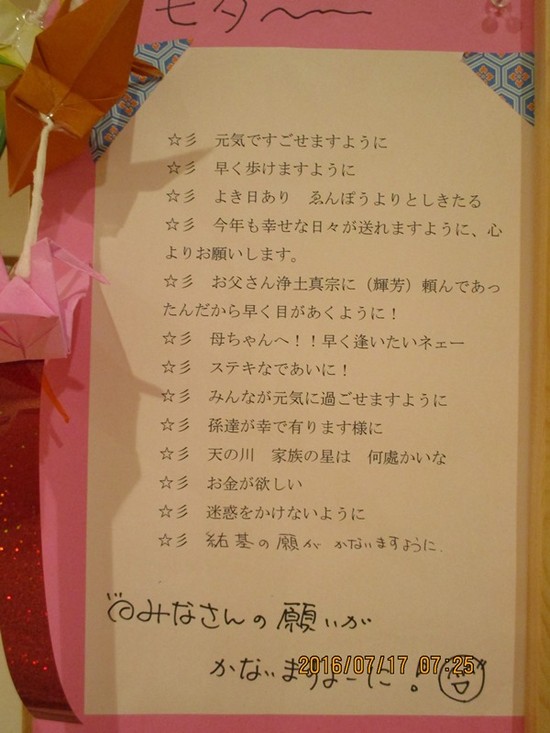 七夕
☆彡 元気ですごせますように
☆彡 早く歩けますように
☆彡 よき日あり ゑんぽうよりとしきたる
☆彡 今年も幸せな日々が送れますように、心
よりお願いします。
☆彡 お父さん浄土真宗に（輝芳）頼んであっ
たんだから早く目があくように！
☆彡 母ちゃんへ！！早く逢いたいネェー
☆彡 ステキなであいに！
☆彡 みんなが元気に過ごせますように
☆彡 孫達が幸で有ります様に
☆彡 天の川 家族の星は 何處かいな
☆彡 お金が欲しい
☆彡 迷惑をかけないように
☆彡 結基の願が かないますように.
みなさんの願いが
かないますよーに！
2016/07/17 07:25